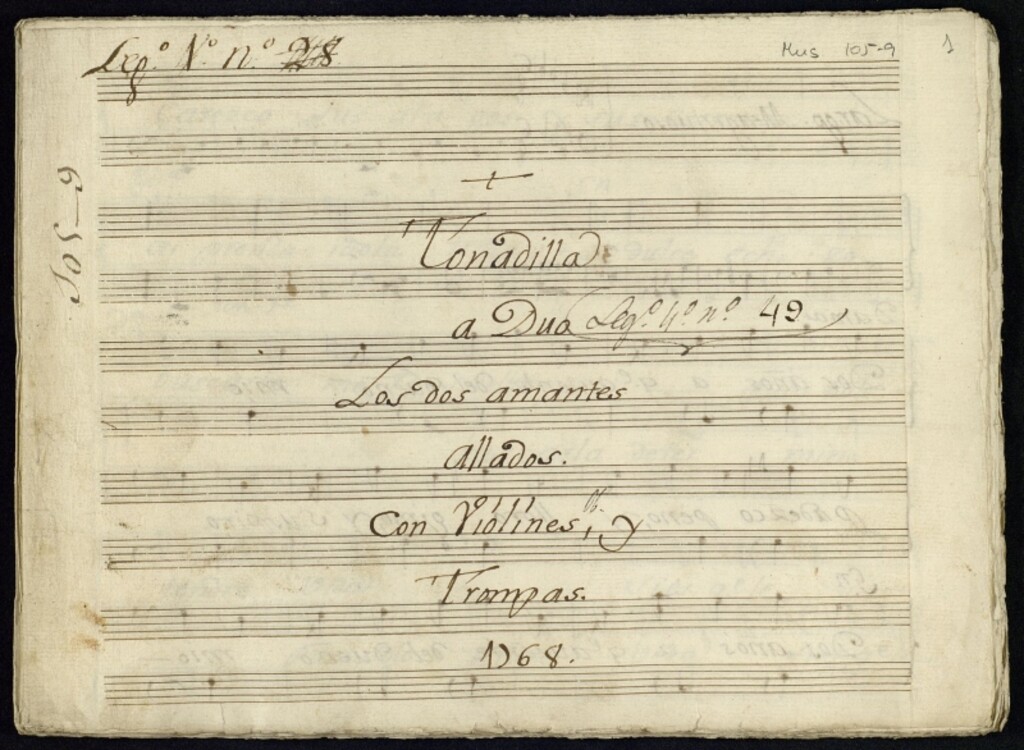 Leg.º N.º n.º
Mus 105-9
1
105-9
+
Tonadilla
a Duo Leg.º 4.º n.º 49
Los dos amantes
allados.
Con Violines, y
Trompas.
1768.